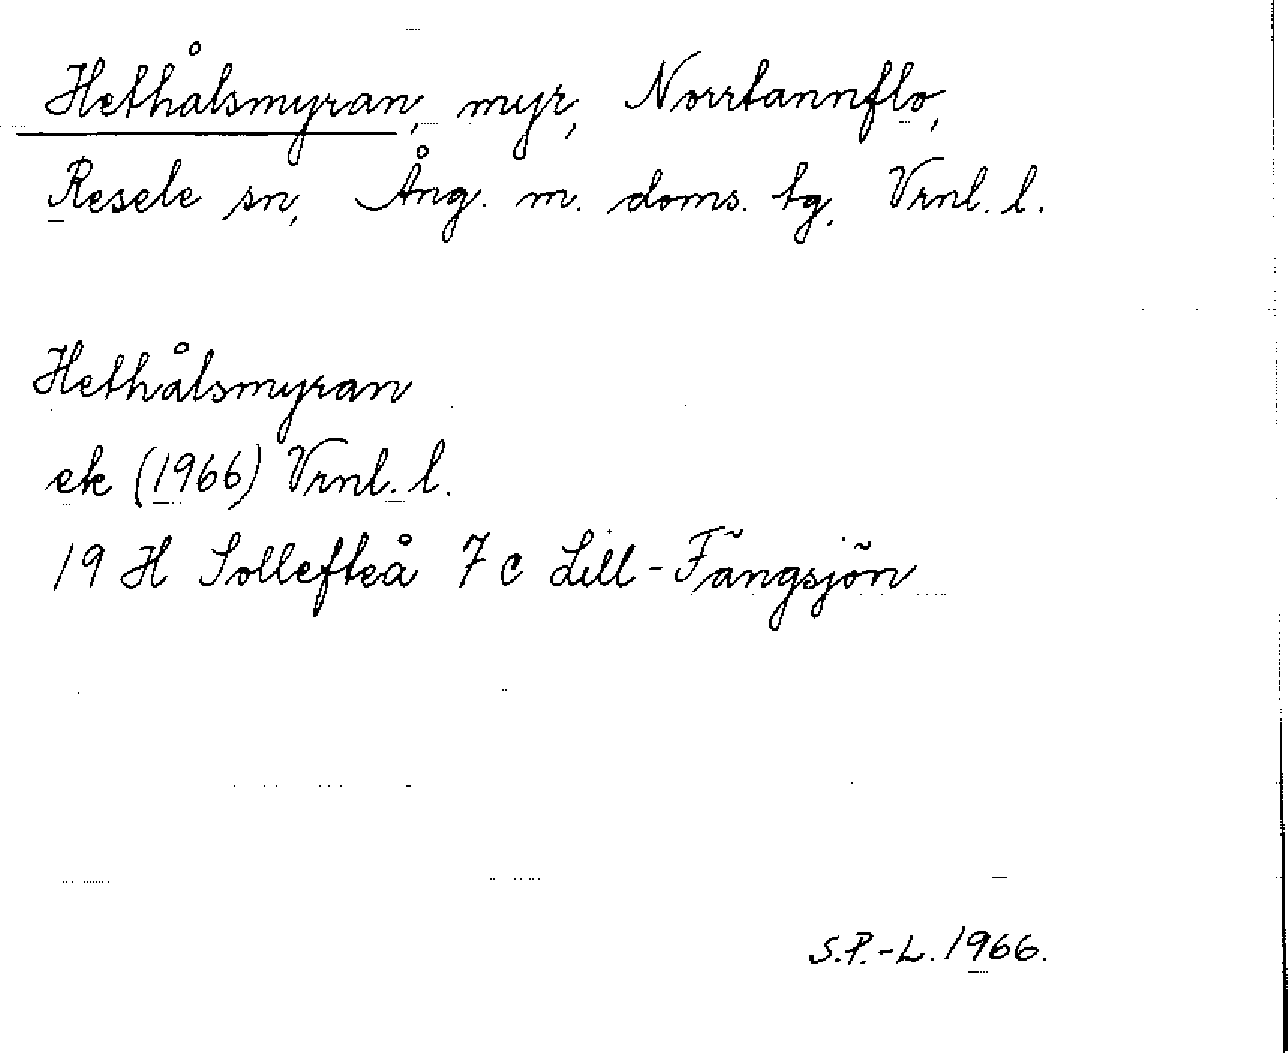 Hethålsmyran, myr, Norrtannflo,
Resele sn, Ång. m. doms. tg, Vrnl. l.
Hethålsmyran
ek (1966) Vrnl. l.
19 H Sollefteå 7 c Lill-Fängsjön
S.P.-L. 1966.